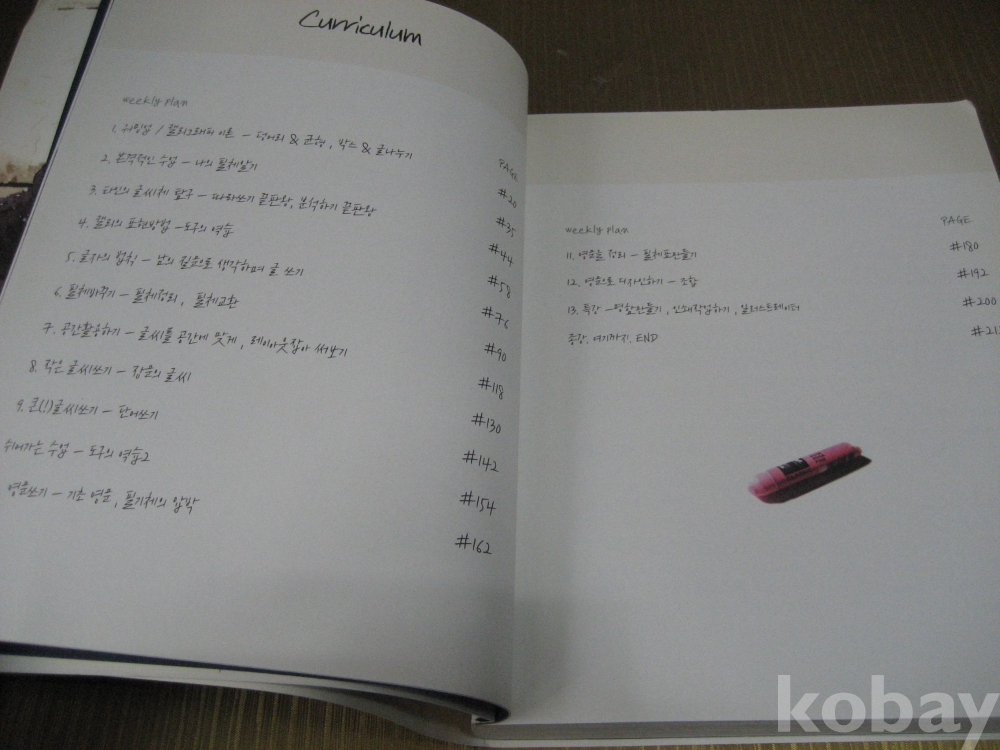 Curriculum
weekly plan
PAGE
1. 워밍업 / 캘리그래피 이론 - 덩어리 & 균형, 박스 & 글나누기
#20
2. 본격적인 수업 - 나의 필체알기
#35
3. 타인의 글씨체 탐구 - 따라쓰기 끝판왕, 분석하기 끝판왕
#44
4. 캘리의 표현방법 - 도구의 역습
#58
5. 글자의 법칙 - 남의 입으로 생각하며 글 쓰기
#76
6. 필체바꾸기 - 필체정리, 필체교환
#90
7. 공간활용하기 - 글씨를 공간에 맞게, 레이아웃잡아 써보기
#118
8. 작은 글씨쓰기 - 글씨
#130
9. 큰(!)글씨쓰기 - 단어쓰기
#142
쉬어가는 수업 - 도구의 역습2
#154
영문쓰기 - 기초 영문, 필기체의 압박
#162
weekly plan
PAGE
11. 영문을 정리 - 필체표만들기
#180
12. 영문으로 디자인하기 - 조합
#192
13. 특강 - 명함만들기, 인쇄작업하기, 일러스트레이터
#200
종강. 여기까지. END
#21
kobay